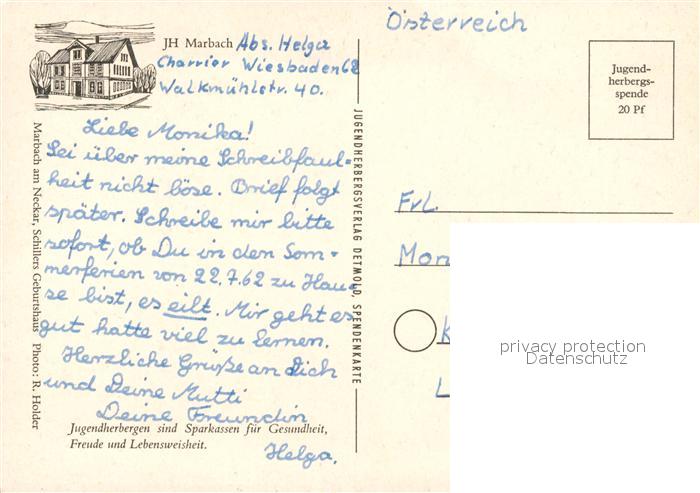 JH Marbach Abs. Helga
Charrier Wiesbaden 62
Walkmühlstr. 40.
Liebe Monika!
Sei über meine Schreibfaul=
heit nicht böse. Brief folgt
später. Schreibe mir bitte
sofort, ob Du in den Som=
merferien von 22.7.62 zu Hau=
se bist, es eilt. Mir geht es
gut hatte viel zu lernen.
Herzliche Grüße an Dich
und Deine Mutti
Deine Freundin
Helga.
Jugendherbergen sind Sparkassen für Gesundheit,
Freude und Lebensweisheit.
Marbach am Neckar, Schillers Geburtshaus Photo: R. Holder
JUGENDHERBERGSVERLAG DETMOLD, SPENDENKARTE
Österreich
Jugend-
herbergs-
spende
20 Pf
Frl.
Mon
K
L
privacy protection
Datenschutz